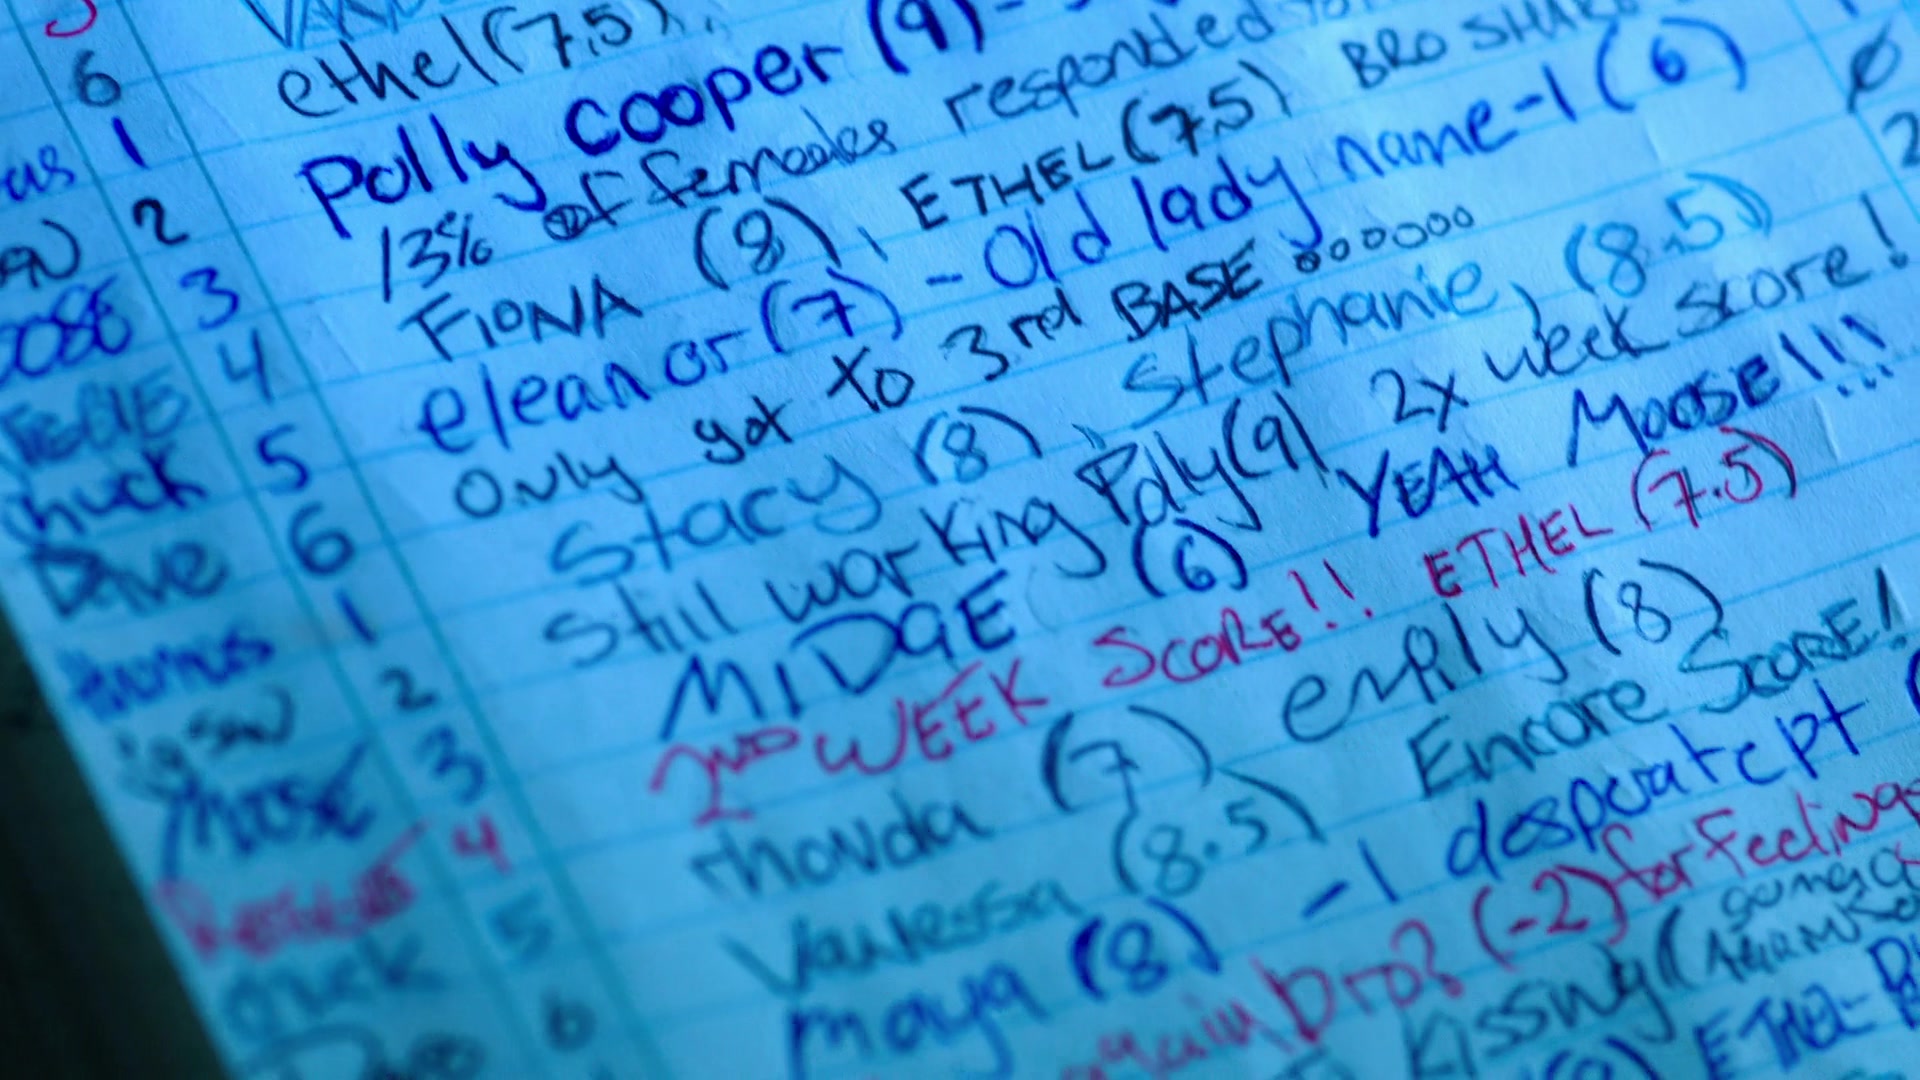 6 ethel (7.5),
1 Polly cooper (9) -
2 13% of females responded
3 FIONA (8), ETHEL (7.5) BRO SHARE
4 eleanor (7) - Old lady name -1 (6)
chuck 5 Only got to 3rd BASE oooooo
Dave 6 Stacy (8), Stephanie, (8.5)
1 Still working Polly (9) 2x week score!
2 MIDGE (6) YEAH MOOSE!!!
MOOSE 3 2ND WEEK SCORE!! ETHEL (7.5)
4 rhonda (7) emily (8)
chuck 5 Vanessa (8.5) Encore SCORE!
6 maya (8) -1 desperate pt
again bro? (-2) for feelings
Kissing (
ETHEL -